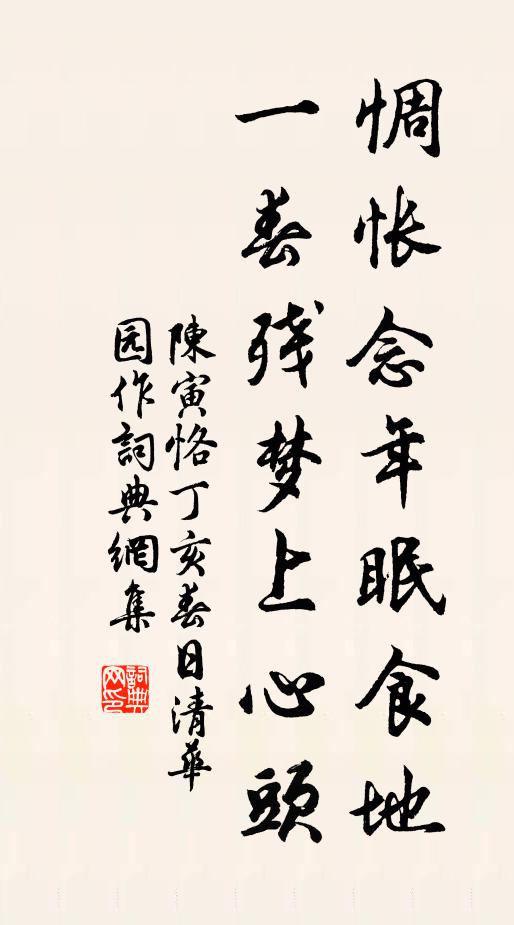 惆怅念年眠食地
一春残梦上心頭
陳寅恪丁亥春日清華
园作詞典網集
詞典网印